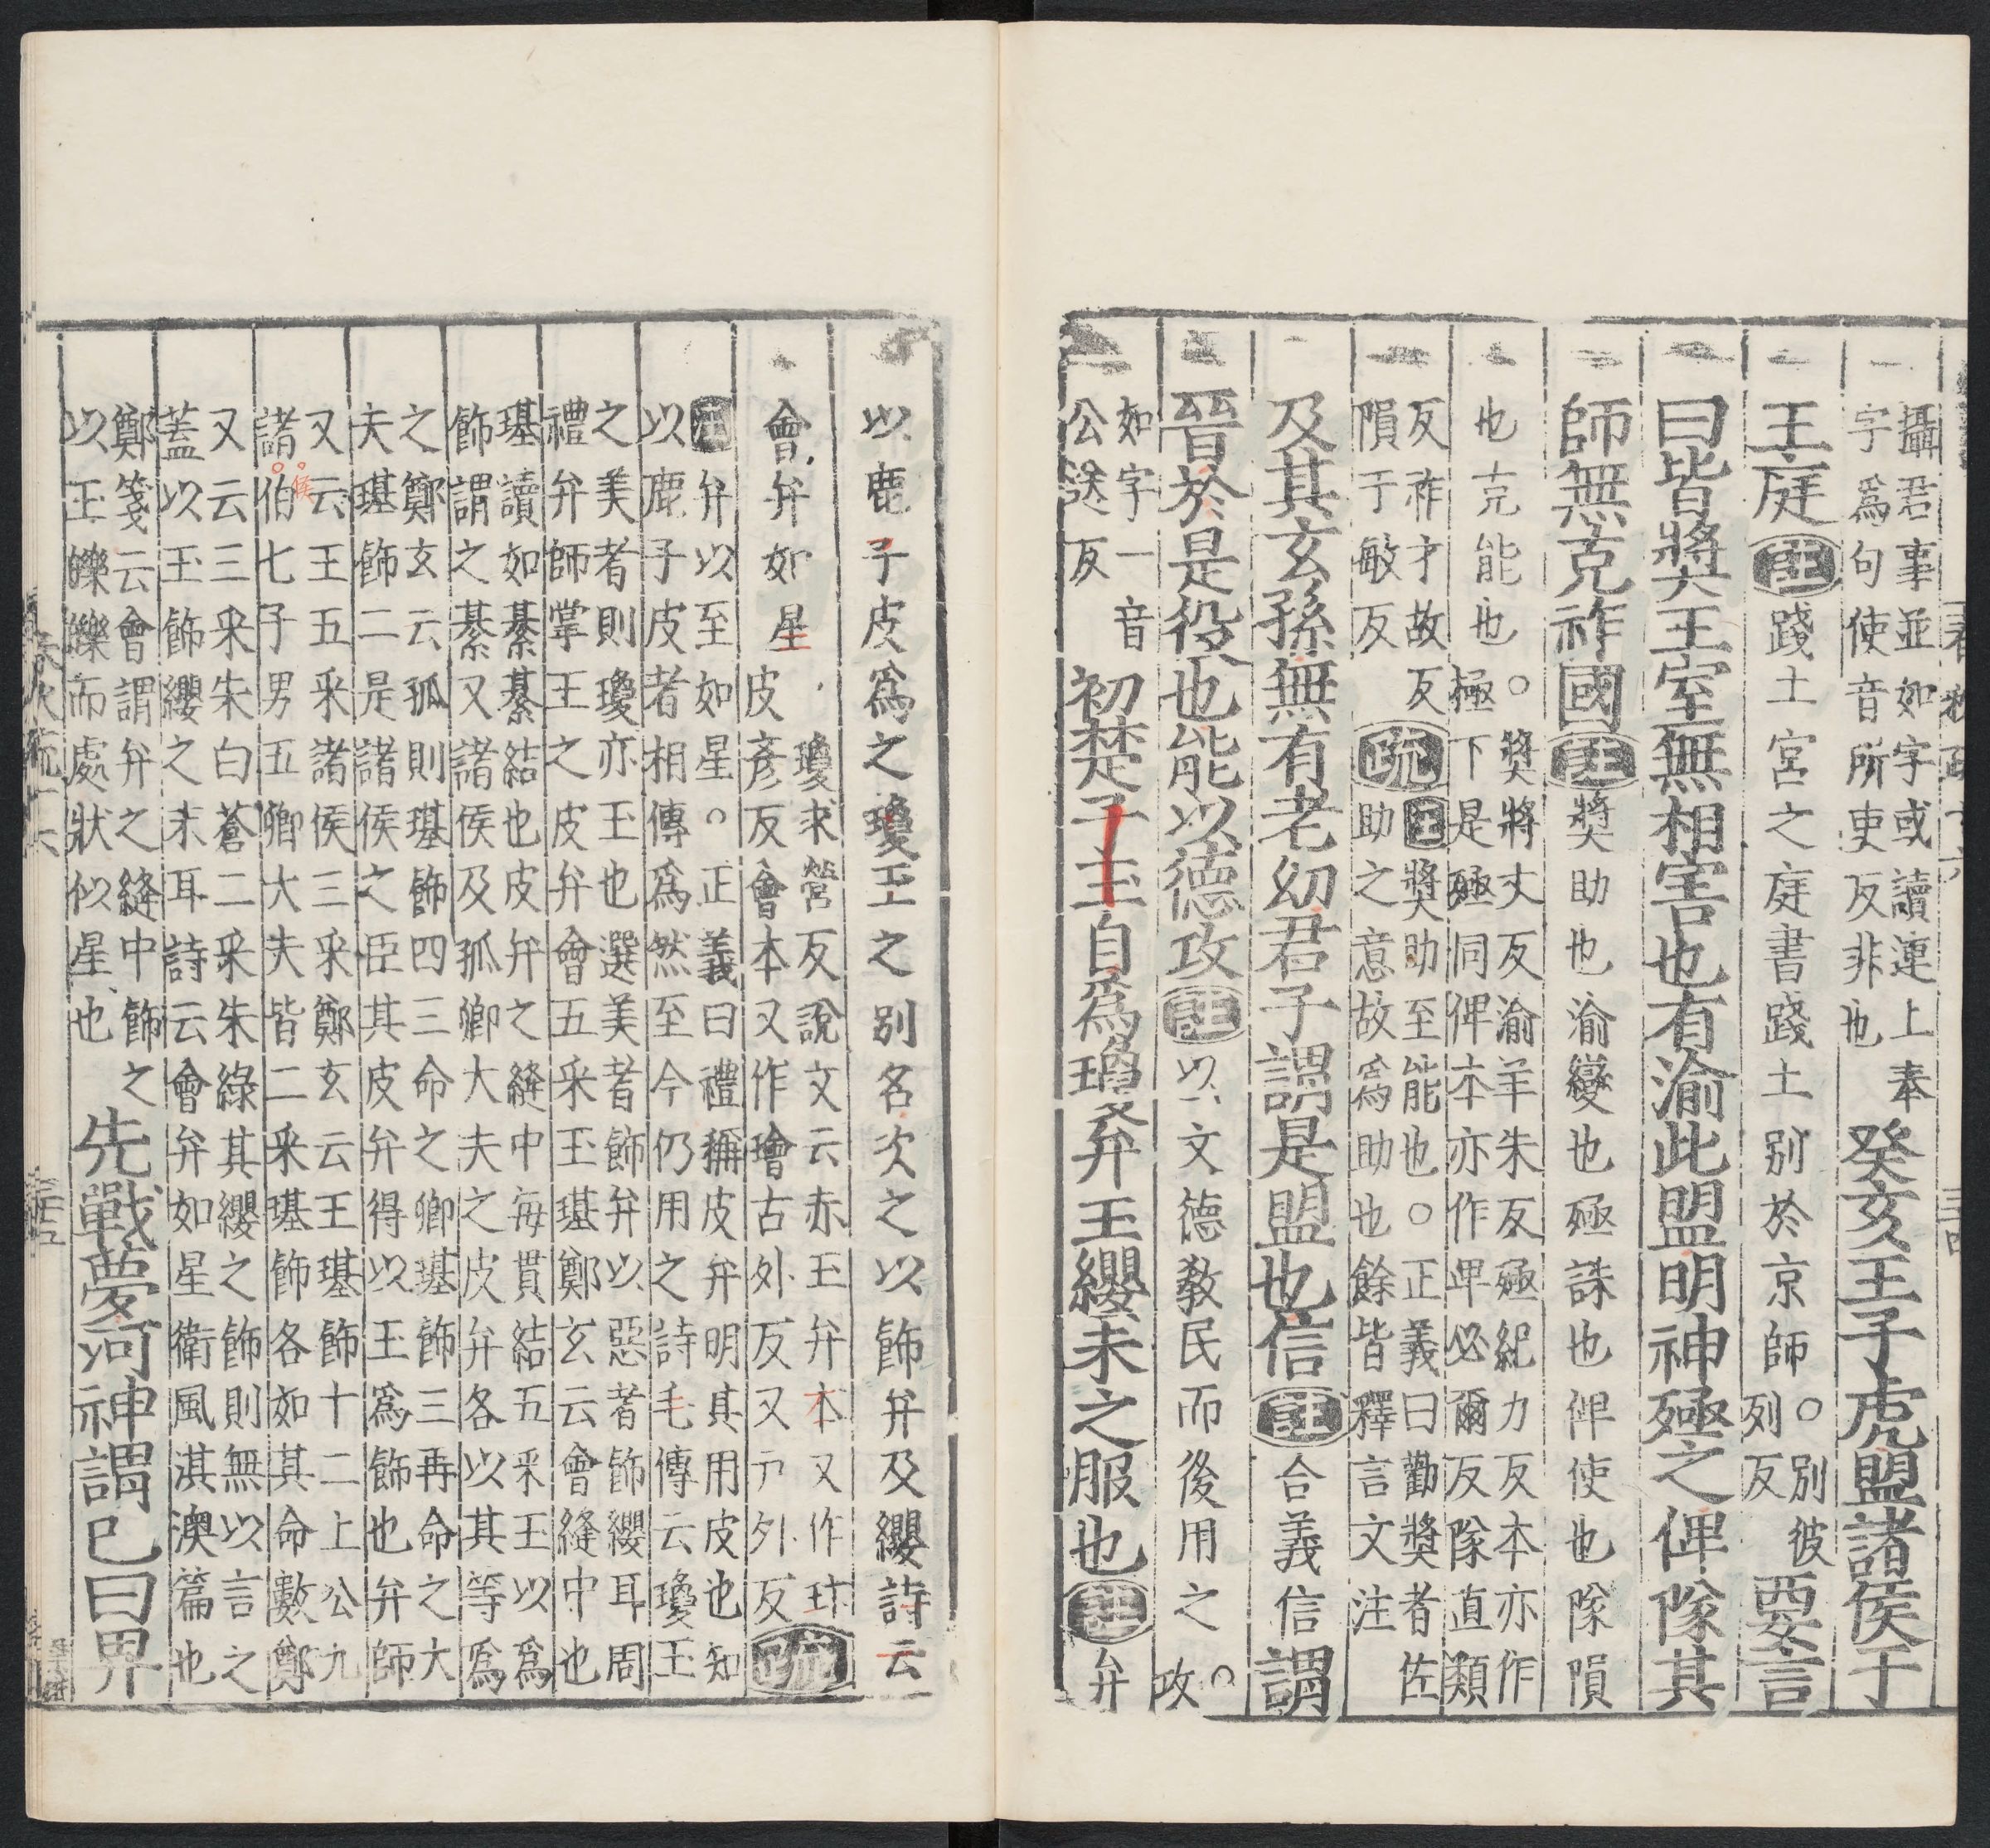 攝君事並如字或讀連上奉
字爲句使音所吏反非也
癸亥王子虎盟諸侯于
王庭
註
踐土宮之庭書踐土别於京師
○别彼
列反
要言
曰皆奬王室無相害也有渝此盟明神殛之俾隊其
師無克祚國
註
奬助也渝變也殛誅也俾使也隊隕
也克能也
○奬將丈反渝羊朱反殛紀力反本亦作
極下是殛同俾本亦作卑必爾反隊直類
反祚才故反
隕于敏反
疏
註奬助至能也○正義曰勸奬者佐
助之意故爲助也餘皆釋言文注
及其玄孫無有老幼君子謂是盟也信
註
合義信
謂
晉於是役也能以德攻
註
以文德教民而後用之
○攻
如字一音
公送反
初楚子玉自爲瓊弁玉纓未之服也
註
弁
以鹿子皮爲之瓊玉之别名次之以飾弁及纓詩云
會弁如星
瓊求營反說文云赤玉弁本又作玣
皮彥反會本又作璯古外反又戸外反
疏
註弁以至如星○正義曰禮稱皮弁明其用皮也知
以鹿子皮者相傳爲然至今仍用之詩毛傳云瓊玉
之美者則瓊亦玉也選美者飾弁以惡者飾纓耳周
禮弁師掌王之皮弁會五采玉璂鄭玄云會縫中也
璂讀如綦綦結也皮弁之縫中每貫結五采玉以爲
飾謂之綦又諸侯及孤卿大夫之皮弁各以其等爲
之鄭玄云孤則璂飾四三命之卿璂飾三再命之大
夫璂飾二是諸侯之臣其皮弁得以玉爲飾也弁師
又云王五采諸侯三采鄭玄云王璂飾十二上公九
諸侯伯七子男五卿大夫皆二采璂飾各如其命數鄭
又云三采朱白蒼二采朱綠其纓之飾則無以言之
蓋以玉飾纓之末耳詩云會弁如星衛風淇澳篇也
鄭箋云會謂弁之縫中飾之
以玉皪皪而處狀似星也
先戰夢河神謂已曰畀